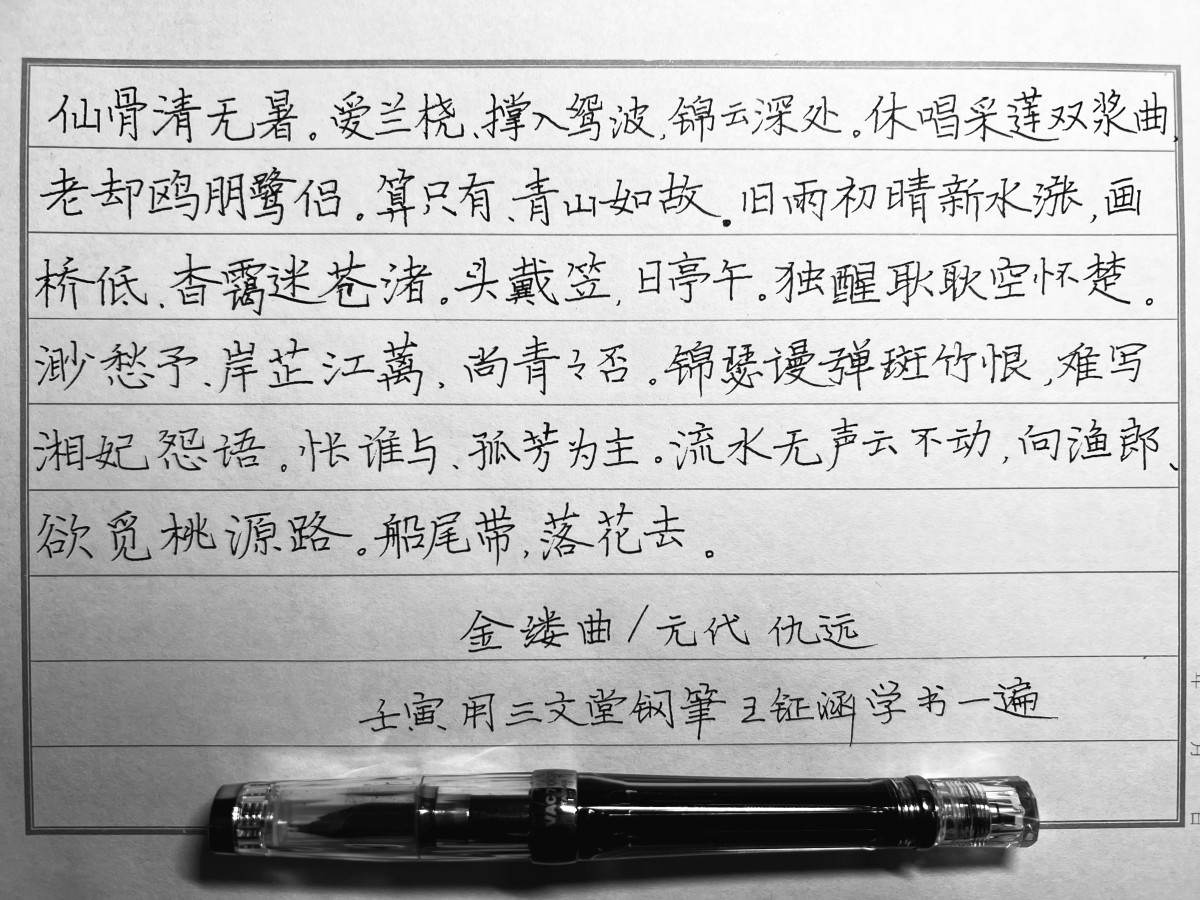 仙骨清无暑。爱兰桡、撑入鸳波,锦云深处。休唱采莲双桨曲,
老却鸥朋鹭侣。算只有、青山如故。旧雨初晴新水涨,画
桥低、杳霭迷苍渚。头戴笠,日亭午。独醒耿耿空怀楚。
渺愁予、岸芷江蓠,尚青々否。锦瑟谩弹斑竹恨,难写
湘妃怨语。怅谁与、孤芳为主。流水无声云不动,向渔郎、
欲觅桃源路。船尾带,落花去。
金缕曲/元代 仇远
壬寅 用三文堂钢筆 王钲涵学书一遍
VAC